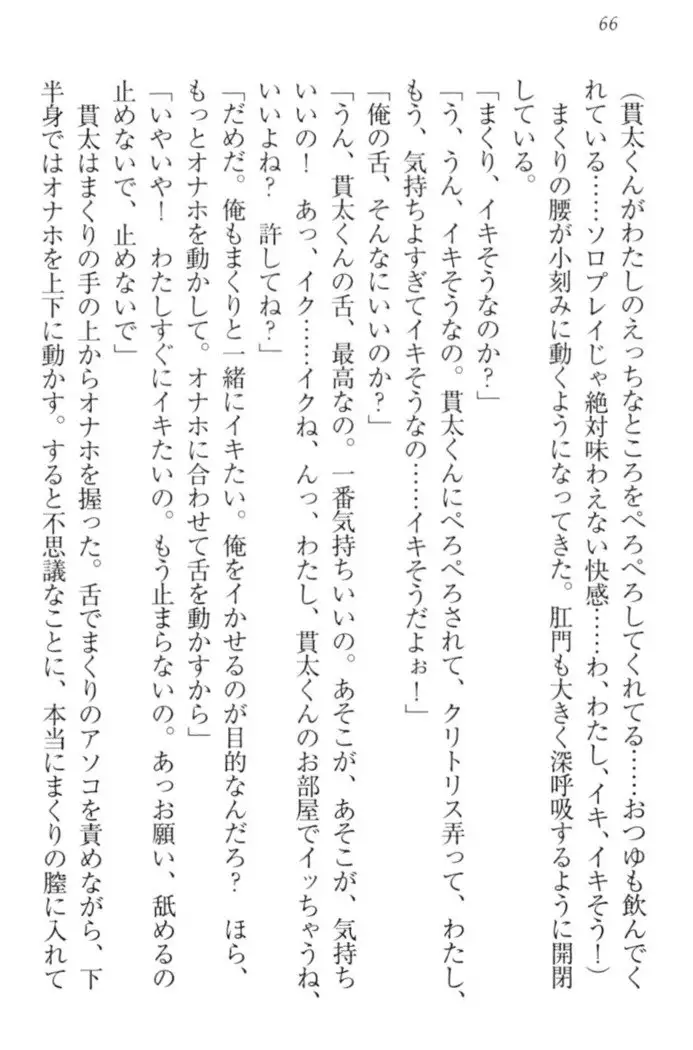 66
(貫太くんがわたしのえっちなところをぺろぺろしてくれてる……おつゆも飲んでく
れている……ソロプレイじゃ絶対味わえない快感……わ、わたし、イキ、イキそう！)
　まくりの腰が小刻みに動くようになってきた。肛門も大きく深呼吸するように開閉
している。
「まくり、イキそうなのか？」
「う、うん、イキそうなの。貫太くんにぺろぺろされて、クリトリス弄って、わたし、
もう、気持ちよすぎてイキそうなの……イキそうだよぉ！」
「俺の舌、そんなにいいのか？」
「うん、貫太くんの舌、最高なの。一番気持ちいいの。あそこが、あそこが、気持ち
いいの！　あっ、イク……イクね、んっ、わたし、貫太くんのお部屋でイッちゃうね、
いいよね？　許してね？」
「だめだ。俺もまくりと一緒にイキたい。俺をイかせるのが目的なんだろ？　ほら、
もっとオナホを動かして。オナホに合わせて舌を動かすから」
「いやいや！　わたしすぐにイキたいの。もう止まらないの。あっお願い、舐めるの
止めないで、止めないで」
　貫太はまくりの手の上からオナホを握った。舌でまくりのアソコを責めながら、下
半身ではオナホを上下に動かす。すると不思議なことに、本当にまくりの膣に入れて